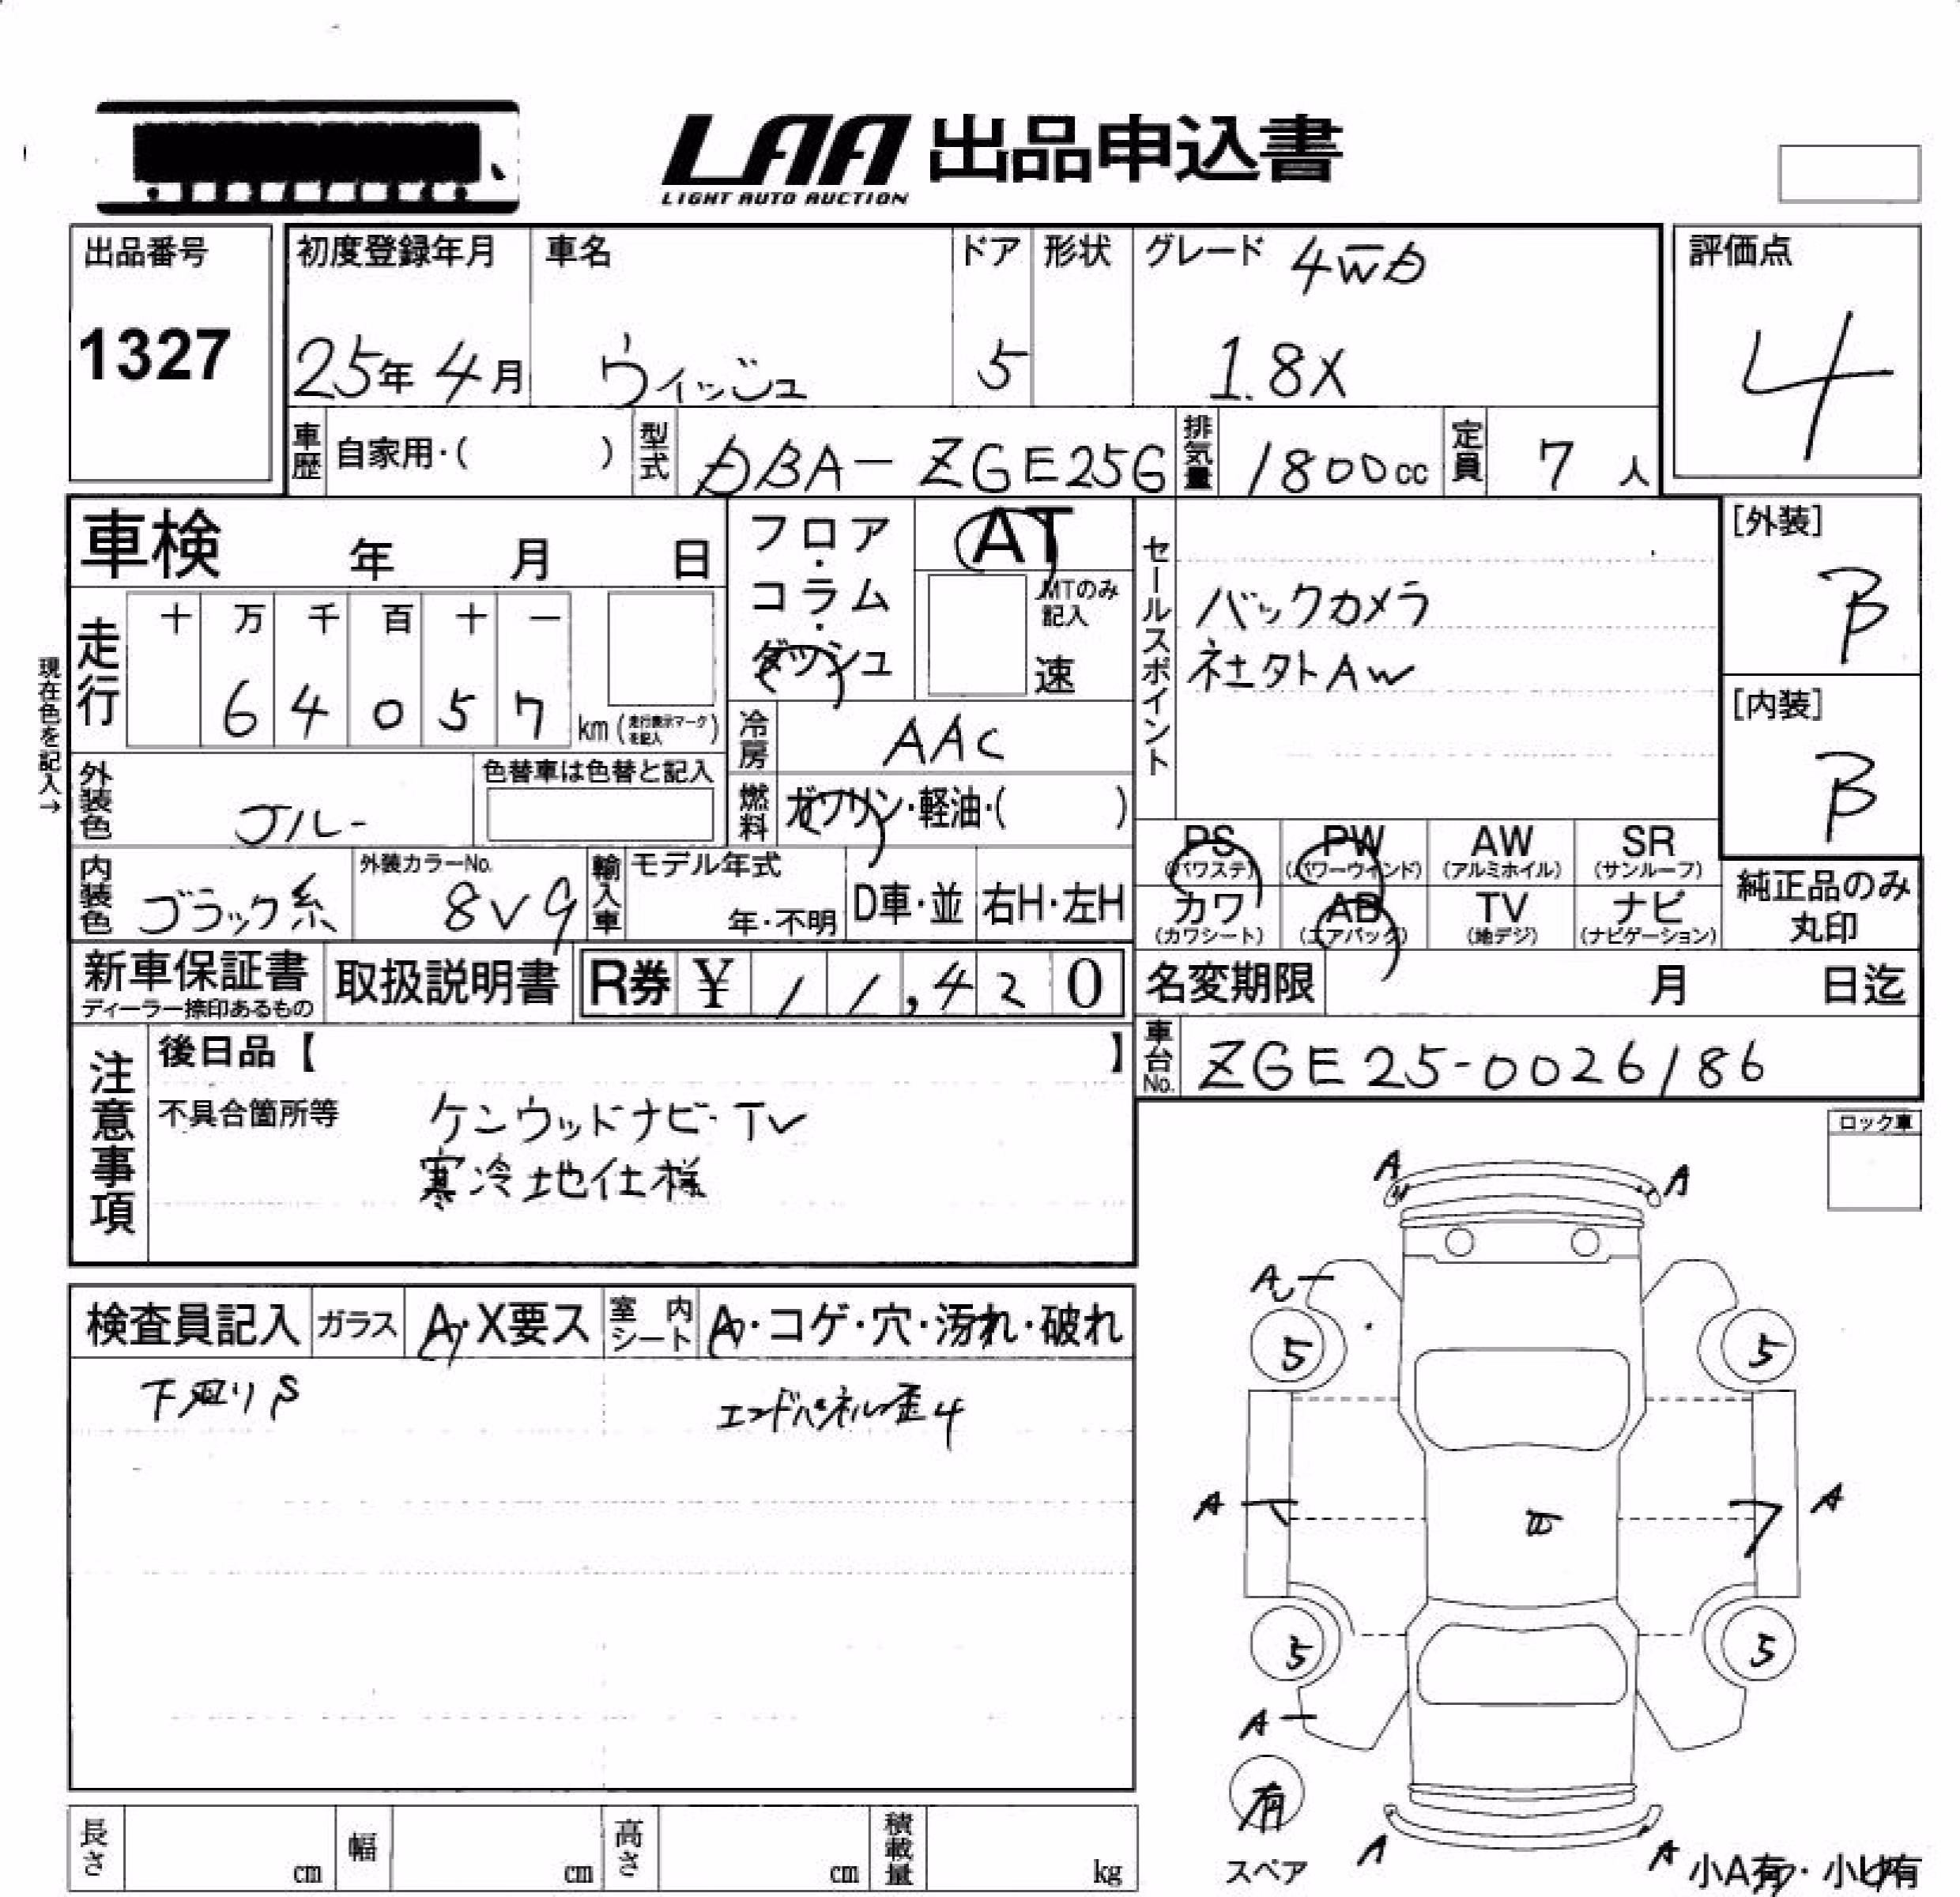 LAA 出品申込書
LIGHT AUTO AUCTION
出品番号
1327
初度登録年月
25年 4月
車名
ウィッシュ
ドア
5
形状
グレード 4WD
1.8X
評価点
4
車歴 自家用・( )
型式 DBA-ZGE25G
排気量 1800cc
定員 7人
車検 年 月 日
フロア・コラム・ダッシュ
AT
MTのみ記入
速
セールスポイント
バックカメラ
社外AW
[外装]
B
[内装]
B
現在色を記入→
走行
十 万 千 百 十 一
6 4 0 5 7 km (走行表示マークを記入)
冷房 AAC
外装色 ブルー
色替車は色替と記入
燃料 ガソリン・軽油・( )
PS (パワステ)
PW (パワーウインド)
AW (アルミホイル)
SR (サンルーフ)
カワ (カワシート)
AB (エアバック)
TV (地デジ)
ナビ (ナビゲーション)
純正品のみ
丸印
内装色 ブラック系
外装カラーNo. 8V9
輸入車
モデル年式
年・不明
D車・並
右H・左H
新車保証書
ディーラー捺印あるもの
取扱説明書
R券 ¥ 11,420
名変期限 月 日迄
車台No. ZGE25-0026186
注意事項
後日品【 】
不具合箇所等
ケンウッドナビ・TV
寒冷地仕様
ロック車
検査員記入
ガラス A・X要ス
室内シート A・コゲ・穴・汚れ・破れ
下廻りS
エンドパネル歪4
A A
A
5 5
A A
5 5
A
有
スペア
A A
小A有・小U有
長さ cm
幅 cm
高さ cm
積載量 kg